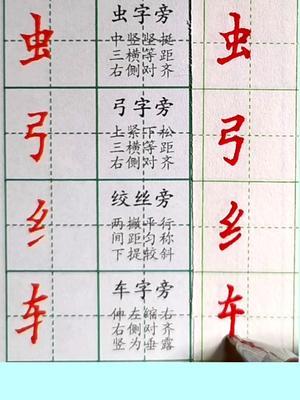 虫 虫字旁 虫
中竖竖挺
三横等距
右侧对齐
弓 弓字旁 弓
上紧下松
三横等距
右侧对齐
纟 绞丝旁 纟
两撇平行
间距匀称
下提较斜
车 车字旁 车
伸左缩右
右侧对齐
竖为垂露